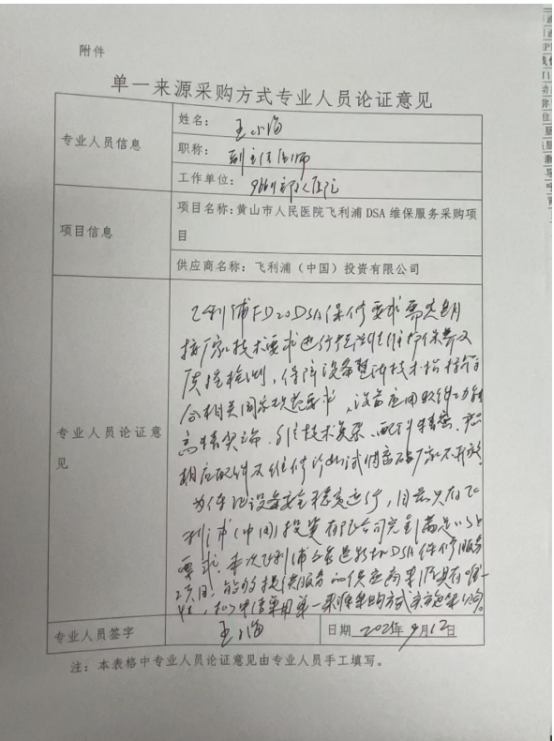 附件
单一来源采购方式专业人员论证意见
专业人员信息
姓名：
职称：副主任
工作单位：
项目信息
项目名称：黄山市人民医院飞利浦DSA维保服务采购项
目
供应商名称：飞利浦（中国）投资有限公司
专业人员论证意
见
飞利浦FD20DSA保修要求需定期
按厂家技术要求进行预防性维护保养及
质控检测，保障设备整体技术指标符
合相关国家规范要求，设备应用软件功能
技术复杂、配件精密，
相应配件及维修
为保证设备安全稳定运行，目前只有飞
利浦（中国）投资有限公司完全满足以上
要求，本次飞利浦DSA保修服务
项目，能够提供服务的供应商来源具有唯一
性，申请采用单一来源采购方式
专业人员签字
日期 9月12日
注：本表格中专业人员论证意见由专业人员手工填写。